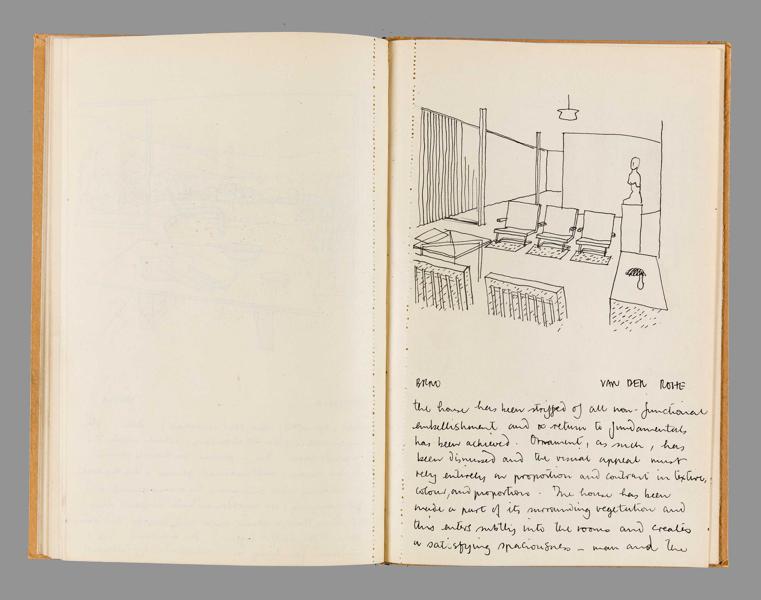 BRNO VAN DER ROHE
the house has been stripped of all non-functional
embellishment and a return to fundamentals
has been achieved. Ornament, as such, has
been dismissed and the visual appeal must
rely entirely on proportion and contrast in texture,
colour, and proportions. The house has been
made a part of its surrounding vegetation and
this enters subtly into the rooms and creates
a satisfying spaciousness – man and the